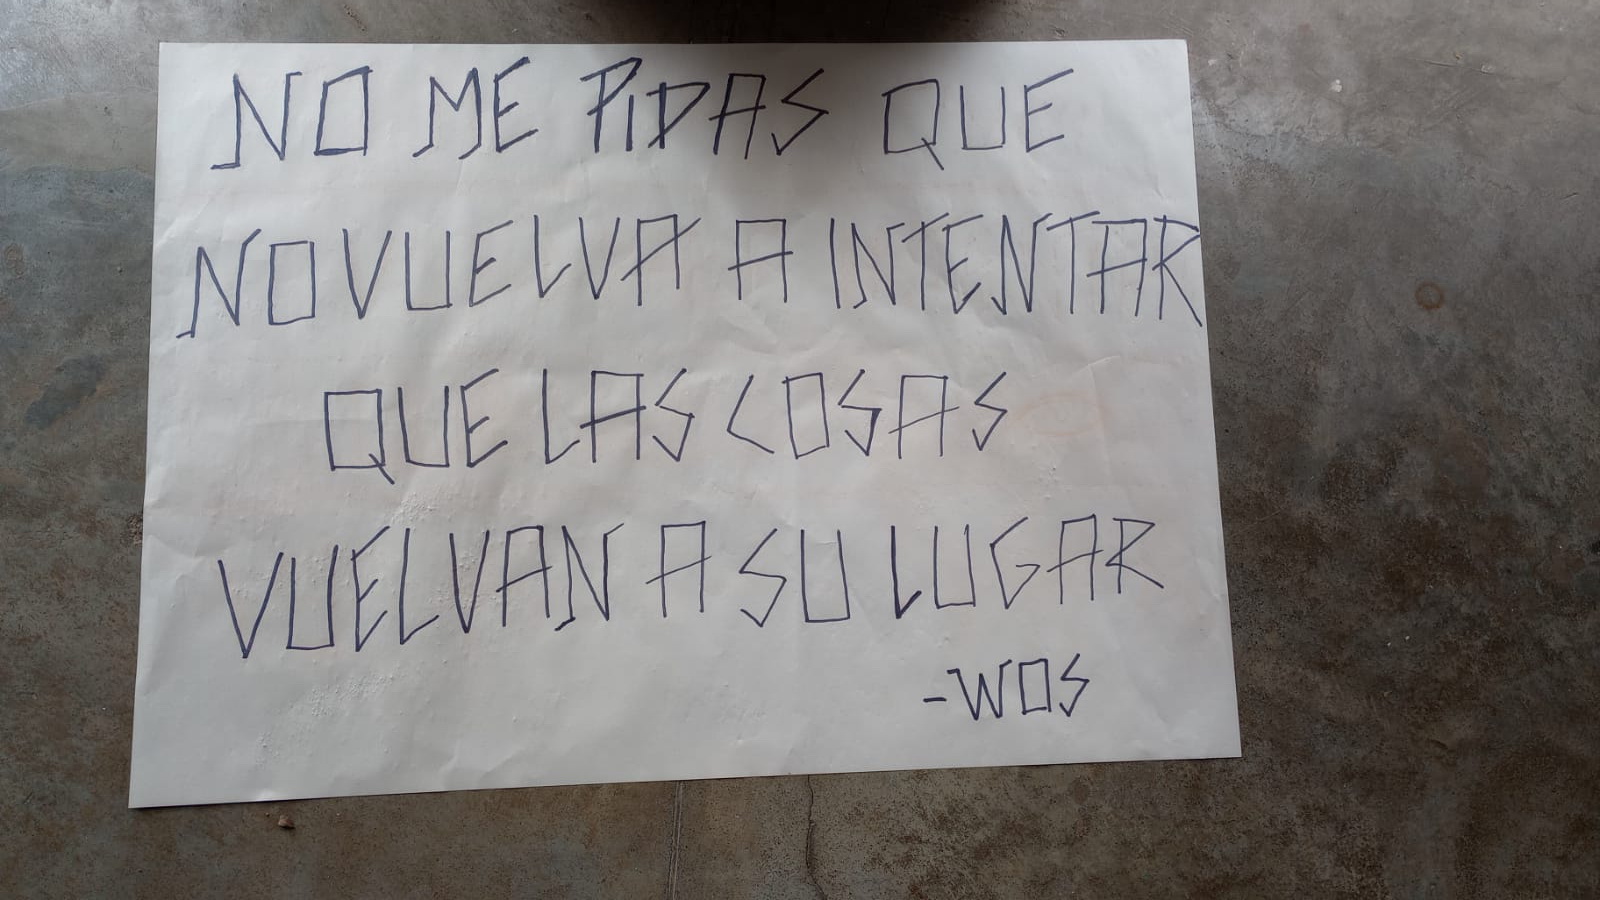 NO ME PIDAS QUE
NO VUELVA A INTENTAR
QUE LAS COSAS
VUELVAN A SU LUGAR
-WOS